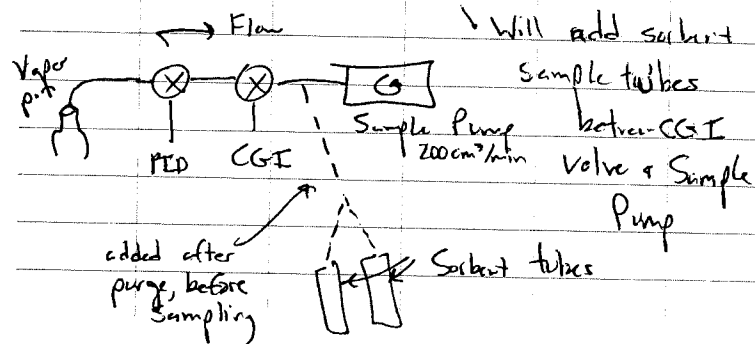 → Flow
Will add sorbent
sample tubes
between CGI
valve & Sample
Pump
Vapor
PID
CGI
Sample Pump
200 cm³/min
added after
purge, before
sampling
Sorbent tubes